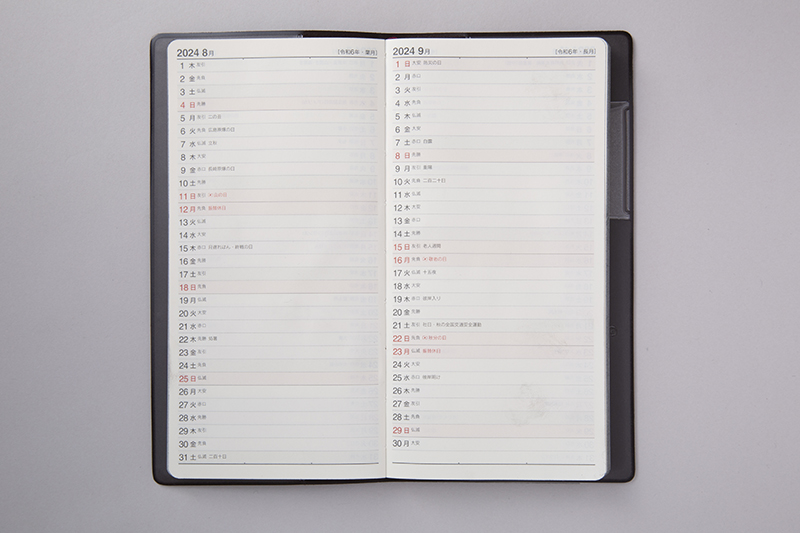 2024 8月 [令和6年・葉月]
1 木 友引
2 金 先負
3 土 仏滅
4 日 先勝
5 月 友引 二の丑
6 火 先負 広島原爆の日
7 水 仏滅 立秋
8 木 大安
9 金 赤口 長崎原爆の日
10 土 先勝
11 日 友引 ㊗山の日
12 月 先負 振替休日
13 火 仏滅
14 水 大安
15 木 赤口 月遅れぼん・終戦の日
16 金 先勝
17 土 友引
18 日 先負
19 月 仏滅
20 火 大安
21 水 赤口
22 木 先勝 処暑
23 金 友引
24 土 先負
25 日 仏滅
26 月 大安
27 火 赤口
28 水 先勝
29 木 友引
30 金 先負
31 土 仏滅 二百十日
2024 9月 [令和6年・長月]
1 日 大安 防災の日
2 月 赤口
3 火 友引
4 水 先負
5 木 仏滅
6 金 大安
7 土 赤口 白露
8 日 先勝
9 月 友引 重陽
10 火 先負 二百二十日
11 水 仏滅
12 木 大安
13 金 赤口
14 土 先勝
15 日 友引 老人週間
16 月 先負 ㊗敬老の日
17 火 仏滅 十五夜
18 水 大安
19 木 赤口 彼岸入り
20 金 先勝
21 土 友引 社日・秋の全国交通安全運動
22 日 先負 ㊗秋分の日
23 月 仏滅 振替休日
24 火 大安
25 水 赤口 彼岸明け
26 木 先勝
27 金 友引
28 土 先負
29 日 仏滅
30 月 大安